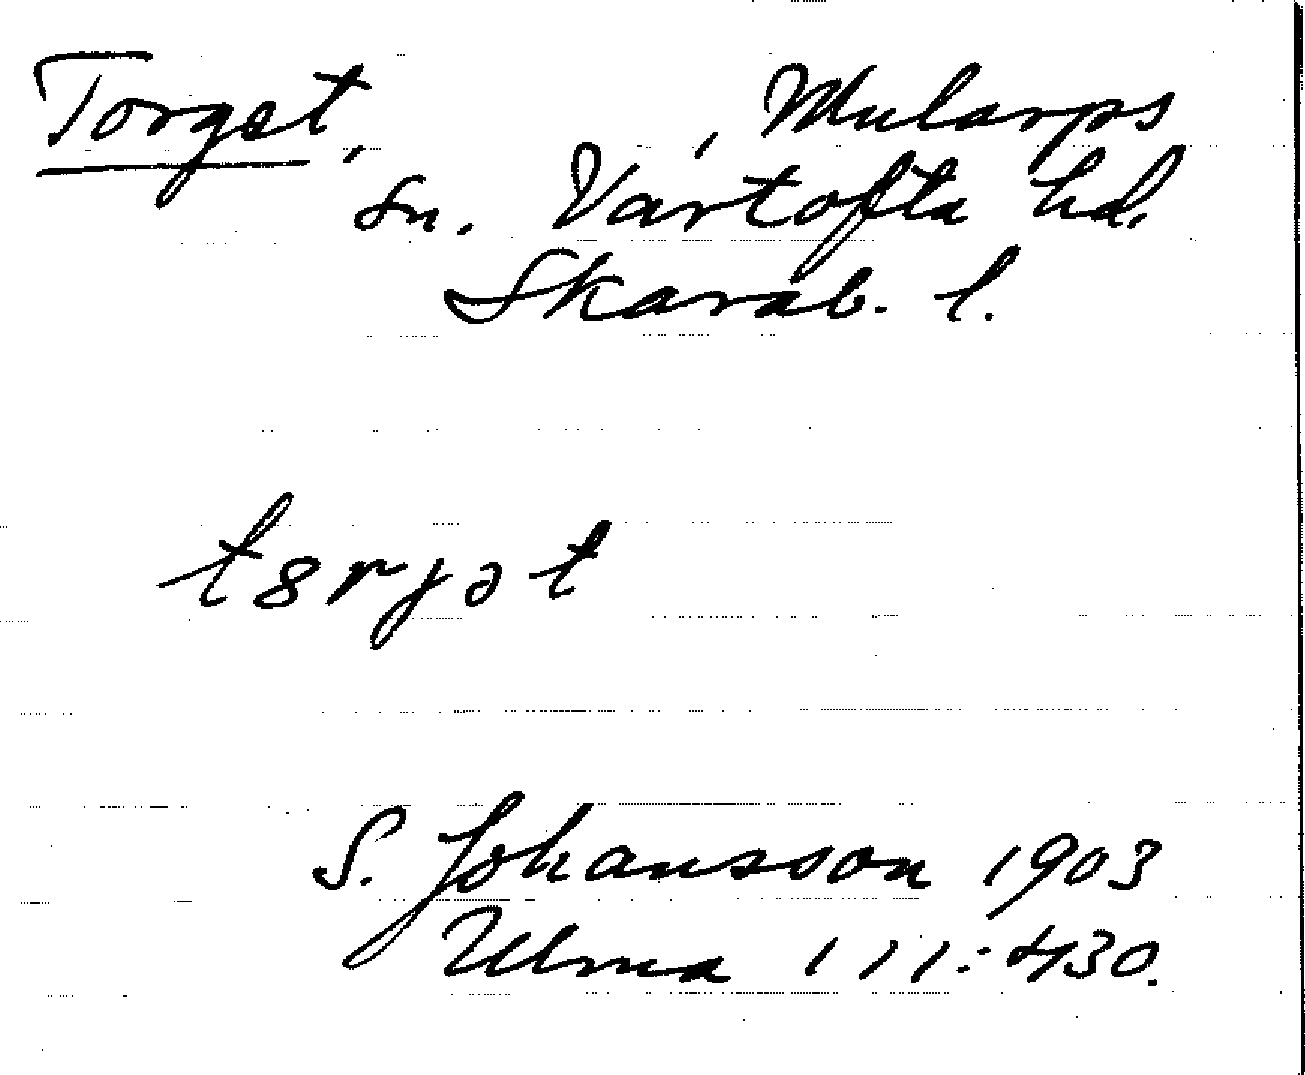 Torget, , Mularps
sn. Vartofta hd.
Skarab. l.
t8rjət
S. Johansson 1903
Ulma 111:430.